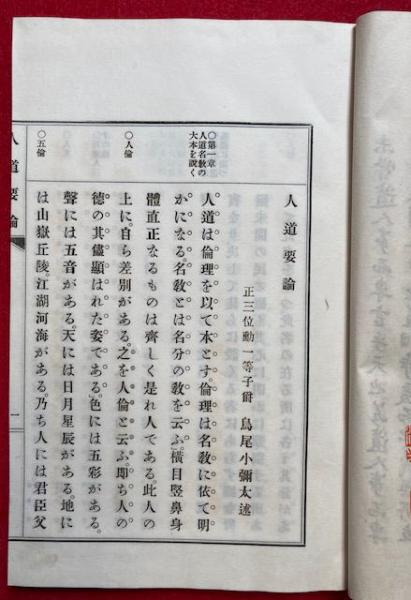 人道要論
正三位勲一等子爵　鳥尾小彌太述
○第一章
人道名敎の
大本を說く
人道は倫理を以て本とす。倫理は名敎に依て明
かになる。名敎とは名分の敎を云ふ。橫目竪鼻身
體直正なるものは齊しく是れ人である。此人の
○人倫
上に。自ら差別がある。之を人倫と云ふ。即ち人の
德の其儘顯はれた姿である。色には五彩がある。
聲には五音がある。天には日月星辰がある。地に
○五倫
は山嶽丘陵。江湖河海がある。乃ち人には君臣父
人道要論
一